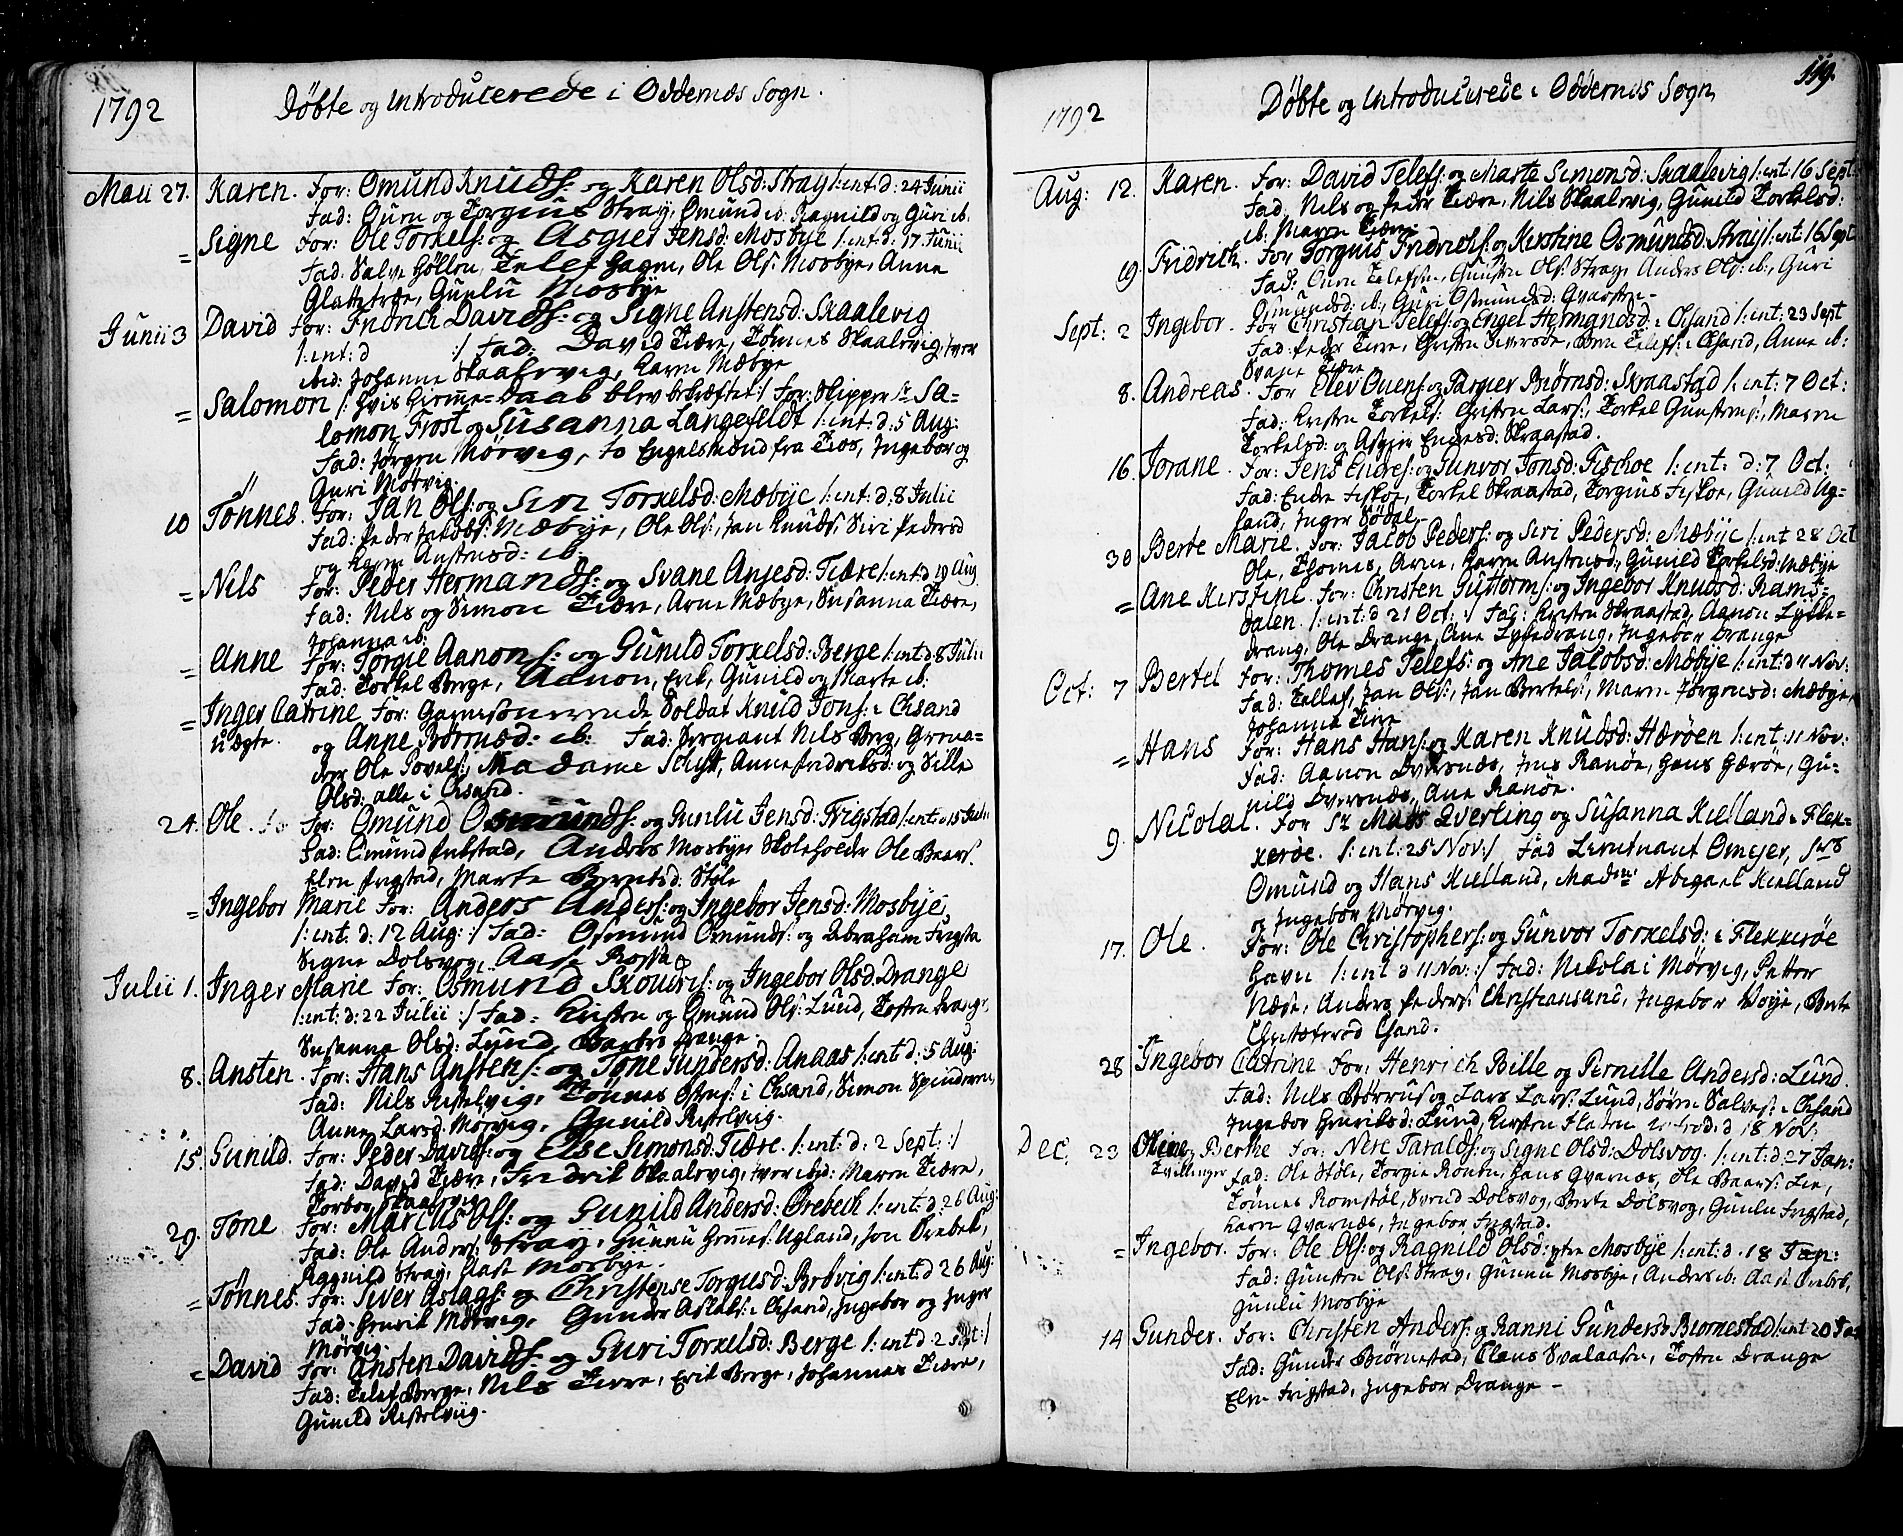 1792
Döbte og Introducerede i Oddernæs Sogn.
Maii 27. Karen. For: Omund Knuds: og Karen Olsd: Stray /: int: d: 24 Junii
Fad: Ouen og Torgius Stray, Omund ib: Ragnild og Guri ib.
= Signe For: Ole Torkels: og Asgier Jensd: Mosbye /: int: d: 17 Junii
Fad: Salve Høllen, Telef Hagen, Ole Ols: Mosbye, Anne
Glattetræ, Gunlu Mosbye
Junii 3 David For: Fridrich Davids: og Signe Anstensd: Skaalevig
/: int: d :/ Fad: David Tiære, Tønnes Skaalevig, Iver
ibid: Johanne Skaalevig, Karen Mæbye
= Salomon /: hvis hiemme=daab blev bekræftet :/ For: Skipper Sr Sa=
lomon Frost og Susanna Langefeldt /: int: d. 5 Aug:
Fad: Jørgen Mørvig, to Engelsmænd fra Tios, Ingebor og
Guri Mørvig.
10 Tønnes. For: Jan Ols: og Siri Torkelsd: Mæbye /: int: d. 8 Julii
Fad: Peder Jakobs: Mæbye, Ole Ols:, Jan Knuds: Siri Pedersd
og Karen Anstensd: ib.
= Nils For: Peder Hermands: og Svane Anjesd: Tiære /: int: d 19 Aug.
Fad: Nils og Simon Tiære, Arne Mæbye, Susanna Tiære,
Johanna ib.
= Anne For: Torgie Aanons: og Gunild Torkelsd: Berge /: int: d 8 Julii
Fad: Torkel Berge, Aanon, Erik, Gunild og Marte ib:
= Inger Catrine For: Garnisonerende Soldat Knud Jons: i Chsand
uægte. og Anne Børrnsd: ib: Fad: Sergiant Nils Berg, Grena=
der Ole Povels:, Madame Schut, Anne Fredriksd: og Sille
Olsd: alle i Chsand.
24. Ole. For: Omund Osmunds: og Gunlu Jensd: Frigstad /: int: d 15 Julii
Fad: Omund Frikstad, Anders Mosbye, Skoleholder Ole Baars:
Elen Frigstad, Marte Berntsd: Støle
= Ingebor Marie For: Anders Anders: og Ingebor Jensd: Mosbye
/: int. d: 12 Aug: :/ Fad: Osmund Omunds: og Abraham Frigsta
Signe Dolsvog, Aase Rossa
Julii 1. Inger Marie For: Osmund Skouers: og Ingebor Olsd: Drange
/: int: d: 22 Julii :/ Fad: Kristen og Omund Ols: Lund, Tosten Drange,
Susanna Olsd: Lund, Barbro Drange.
8. Ansten. For: Hans Anstens: og Tone Gundersd: Anaas /: int: d: 5 Aug:
Fad: Nils Resselvig, Tønnes Ostens: i Chsand, Simon Spinderen,
Anne Larsd: Mørvig, Gunild Resselvig.
15. Gunild. For: Peder Davids: og Else Simonsd: Tiære. /: int: d: 2 Sept: :/
Fad: David Tiære, Fredrik Skaalevig, Iver ibid: Maren Tiære,
Torbor Skaalevig.
29. Tone For: Marcus Ols: og Gunild Andersd: Ørebech /: int: d: 26 Aug:
Fad: Ole Anders: Stray, Gunnu Ugland, Jon Ørebek,
Ragnild Stray, Aase Mosbye.
= Tønnes. For: Siver Aslags: og Christense Torgiesd: Brøvig /: int: d 26 Aug:
Fad: Henrik Mørvig, Gunder Aslaks: i Chsand, Ingebor og Inger
Mørvig.
= David For: Ansten Davids: og Guri Torkelsd: Berge /: int: d 2 Sept :/
Fad: Telef Berge, Nils Tiære, Erik Berge, Johannes Tiære,
Gunild Resselviig.
119.
1792
Döbte og Introducerede i Oddernæs Sogn
Aug: 12. Karen. For: David Telefs: og Marte Simonsd: Skaalevig /: int: 16 Sept:
Fad. Nils og Peder Tiære, Nils Skaalevig, Gunild Torkelsd:
ib: Maren Tiære
19. Fridrich. For Torguis Fridrichs: og Kirstine Osmundsd: Stray /: int 16 Sept
Fad: Ouen Telefsen, Gunsten Ols: Stray, Anders Ols: ib:, Guri
Osmundsd: ib:, Guri Osmundsd: Qvarsten.
Sept: 2 Ingebor. For Christian Telefs: og Engel Hermandsd: i Chsand /: int: 23 Sept
Fad: Peder Tiære, Telefs: i Chsand, Anne ib:
Svane Tiære
8. Andreas. For Elev Ouens: og Targier Biørnsd: Skraastad /: int: 7 Oct:
Fad: Kristen Torkels: Christen Lars:, Torkel Gunstens:, Maren
Torkelsd: og Asgier Endresd: Skraastad.
16. Jorane. For: Jens Endres: og Gunvor Jonsd: Fischoe /: int: d: 7 Oct:
Fad: Endre Fiskøe, Torkel Skraastad, Torgius Fiskøe, Gunild Ug=
land, Inger Sødal.
30 Berte Marie. For: Jacob Peders: og Siri Pedersd: Mæbye /: int 28 Oct
Ole, Thomes, Arne, Karen Anstensd, Gunild Torkelsd: Mæbye
= Ane Kirstine. For: Christen Guttorms: og Ingebor Knudsd: Rams=
dalen. /: int: d 21 Oct: :/ Fad: Kristen Skraastad, Aanon Lykke=
drang, Ole Drange, Ane Lykkedrang, Ingebor Drange
Oct: 7 Bertel For: Thomes Telefs: og Ane Jacobsd: Mæbye /: int: d 11 Nov:
Fad: Tellef, Jan Ols:, Jan Bertels:, Maren Jørgensd: Mæbye,
Johanna Tiære
= Hans For: Hans Hans: og Karen Knudsd: Hærøen /: int: 11 Nov:
Fad: Aanon Dversnæs, Jens Ranøe, Hans Hærøe, Gu=
nild Dversnæs, Ane Ranøe.
9. Nicolai. For Sr Mats Qverling og Susanna Kielland i Flek=
kerøe. /: int: 25 Nov :/ Fad Lieutnant Omejer, Srs
Omund og Hans Kielland, Madme Abigael Kielland
og Ingebor Mørvig.
17. Ole. For: Ole Christophers: og Gunvor Torkelsd: i Flekkerøe
Havn /: int d 11 Nov: :/ Fad: Nicolai Mørvig, Petter
Næse, Anders Peders: Christiansand, Ingebor Voye, Berte
Christofersd Chsand.
28 Ingebor Catrine For: Henrich Bille og Pernille Andersd: Lund.
Fad: Nils Børrus og Lars Lars: Lund, Søren Salves: i Chsand
Ingebor Henriksd: Lund, Kirsten introd: d 18 Nov:
Dec. 23 Oline, Berthe For: Nere Taralds: og Signe Olsd: Dolsvog. /: int: d: 27 Jan:
Tvillinger Fad: Ole Støle, Torgie Rønen, Hans Qvarnæs, Ole Baars: Lie,
Tønnes Romstøl, Svend Dolsvog, Berte Dolsvog, Gunlu Frigstad,
Karen Qvarnæs, Ingebor Frigstad.
= Ingebor. For: Ole Ols: og Ragnild Olsd: ytre Mosbye /: int: d. 18 Jan:
Fad: Gunsten Ols: Stray, Gunnu Mosbye, Anders ib: Aase Ørebek,
Gunlu Mosbye
14 Gunder. For: Christen Anders: og Ranni Gundersd Biornestad /: int: 20 Jan
Fad: Gunder Biørnestad, Claus Svalaasen, Tosten Drange
Elen Frigstad, Ingebor Drange –